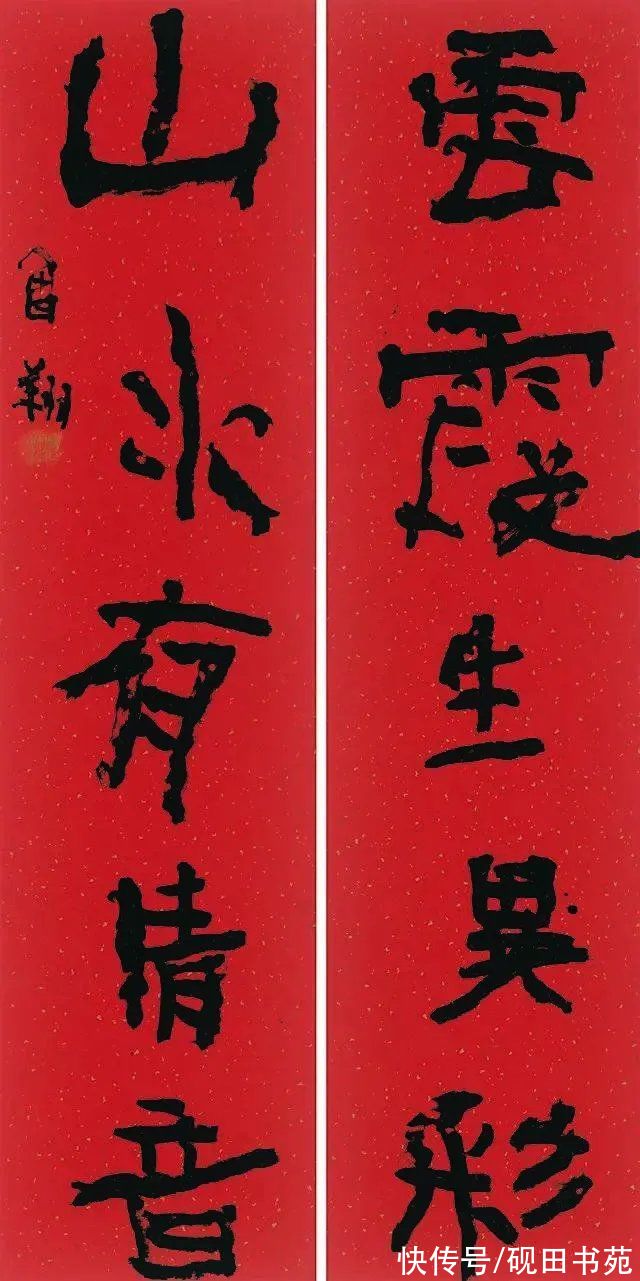 雲霞生異彩
山水有清音
曾翔
快传号/砚田书苑